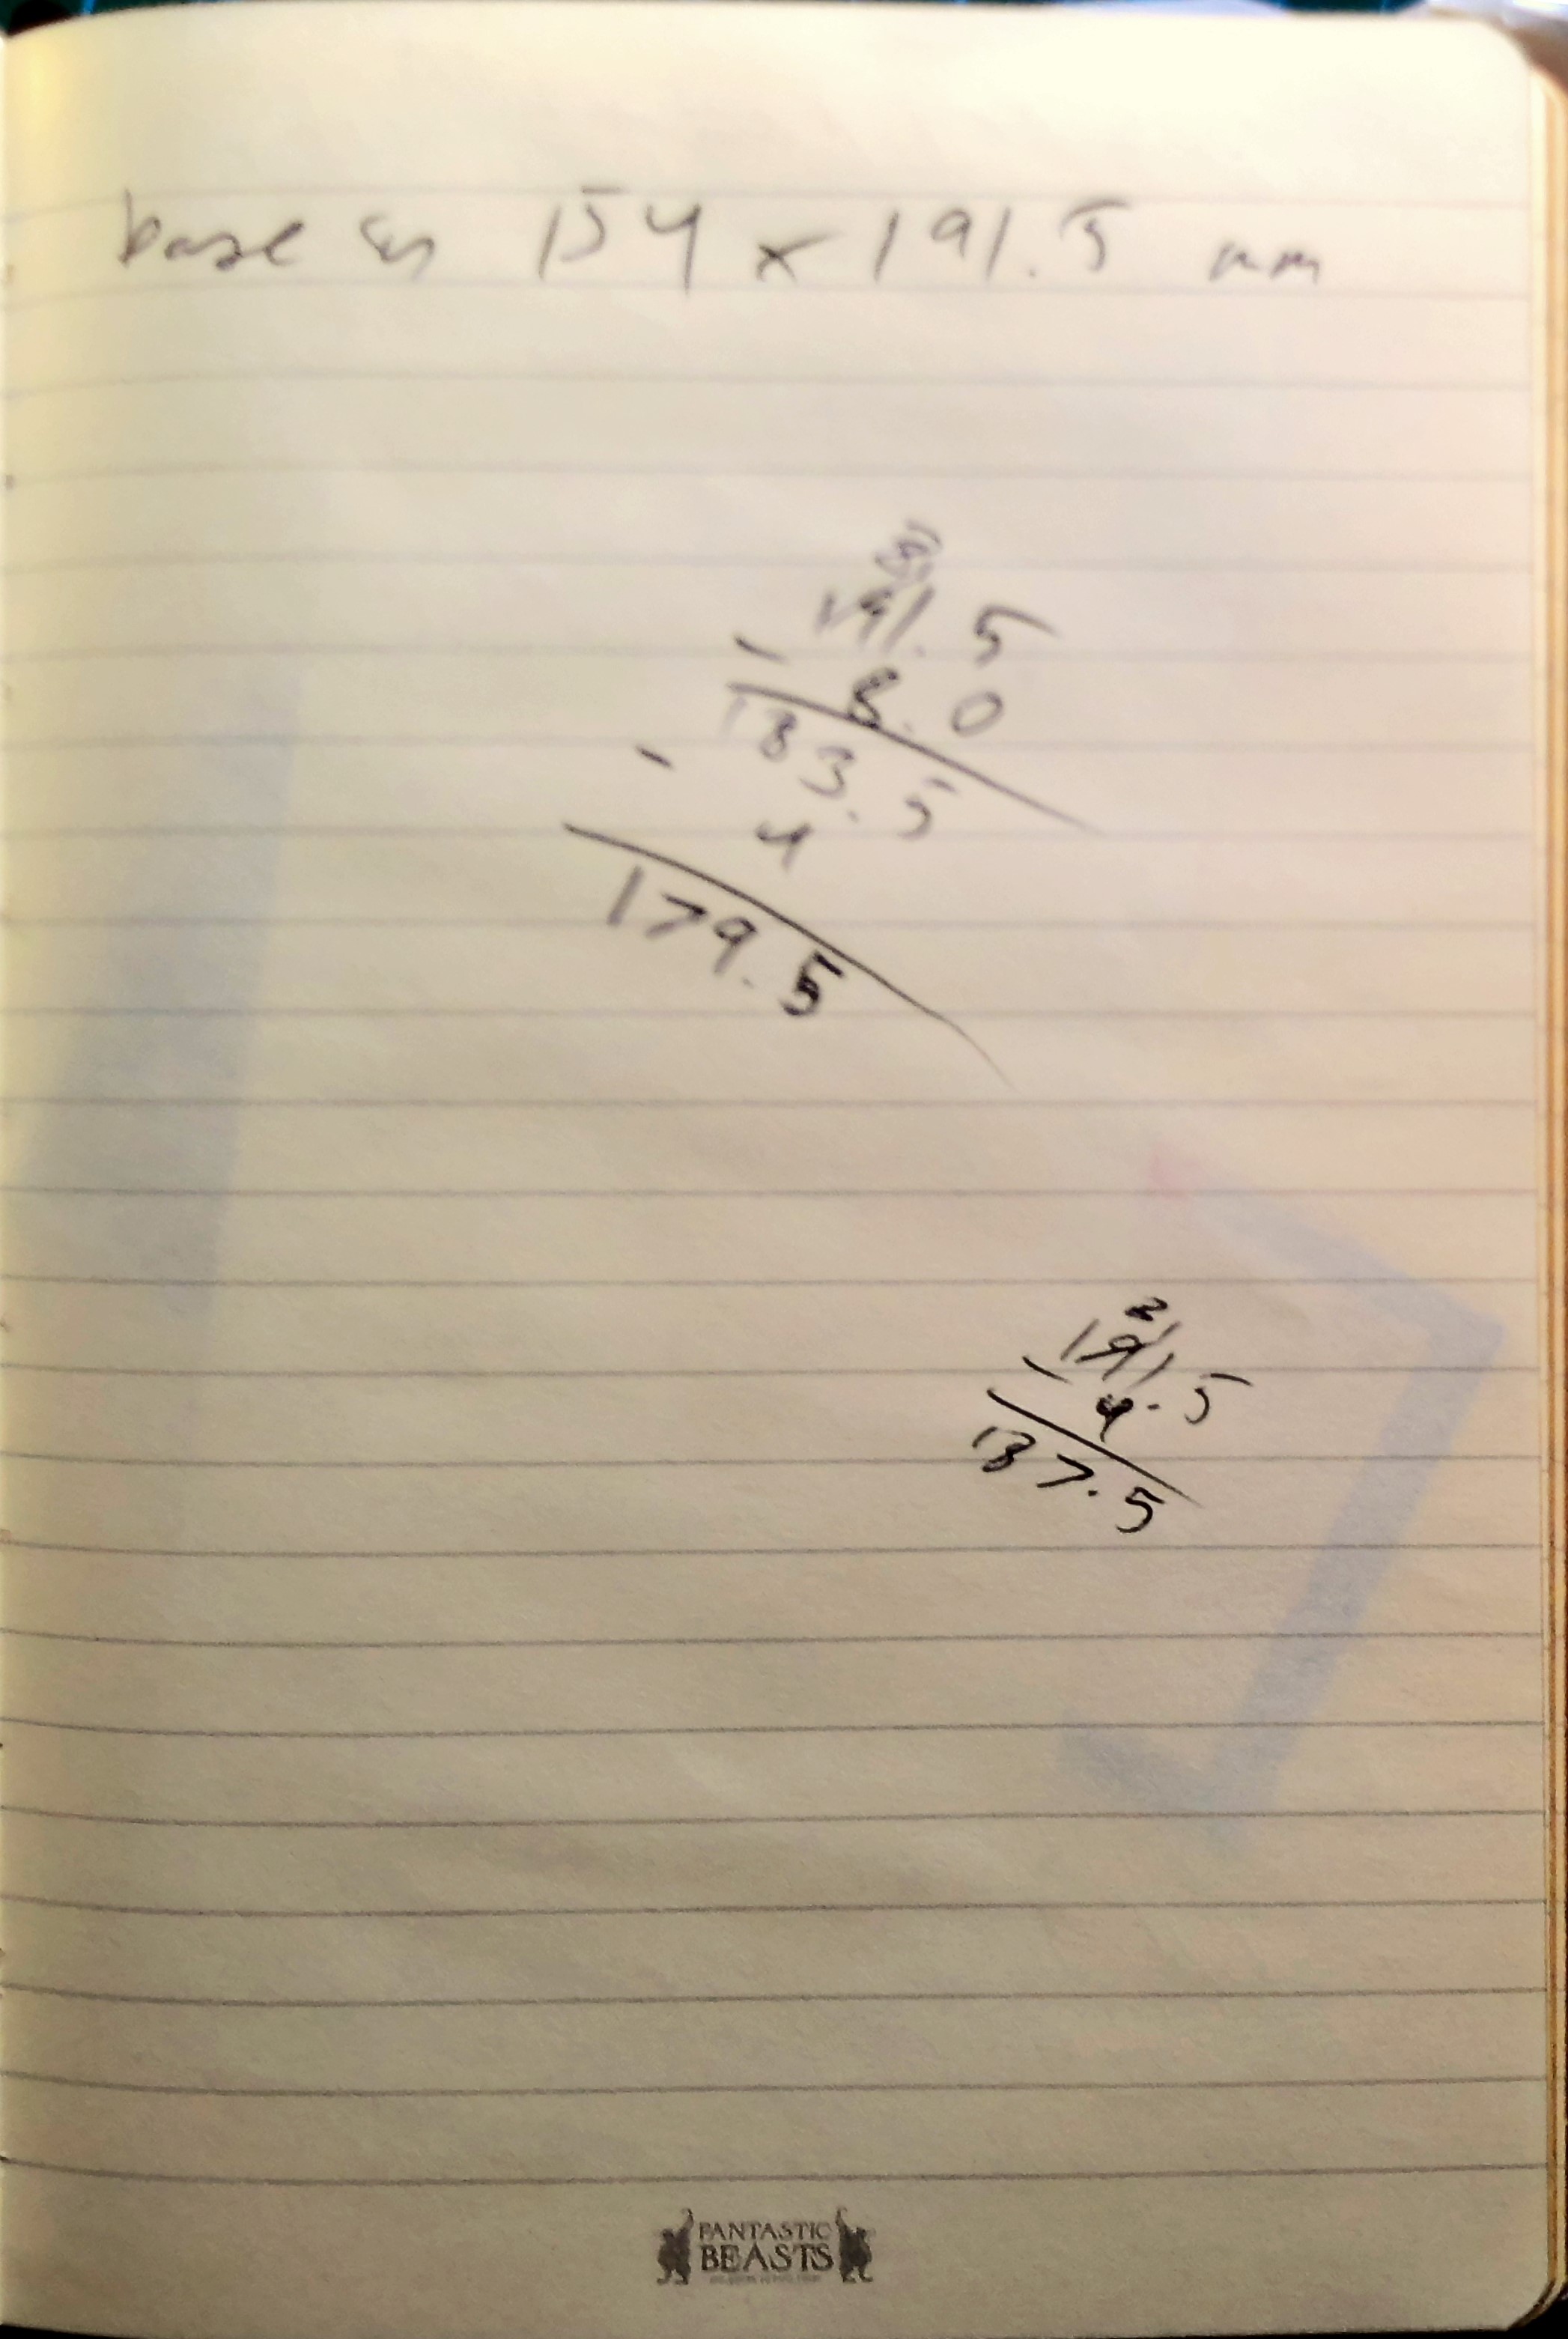 base is 154 x 191.5 mm
191.5
- 8.0
183.5
- 4
179.5
191.5
- 4.
187.5
FANTASTIC
BEASTS